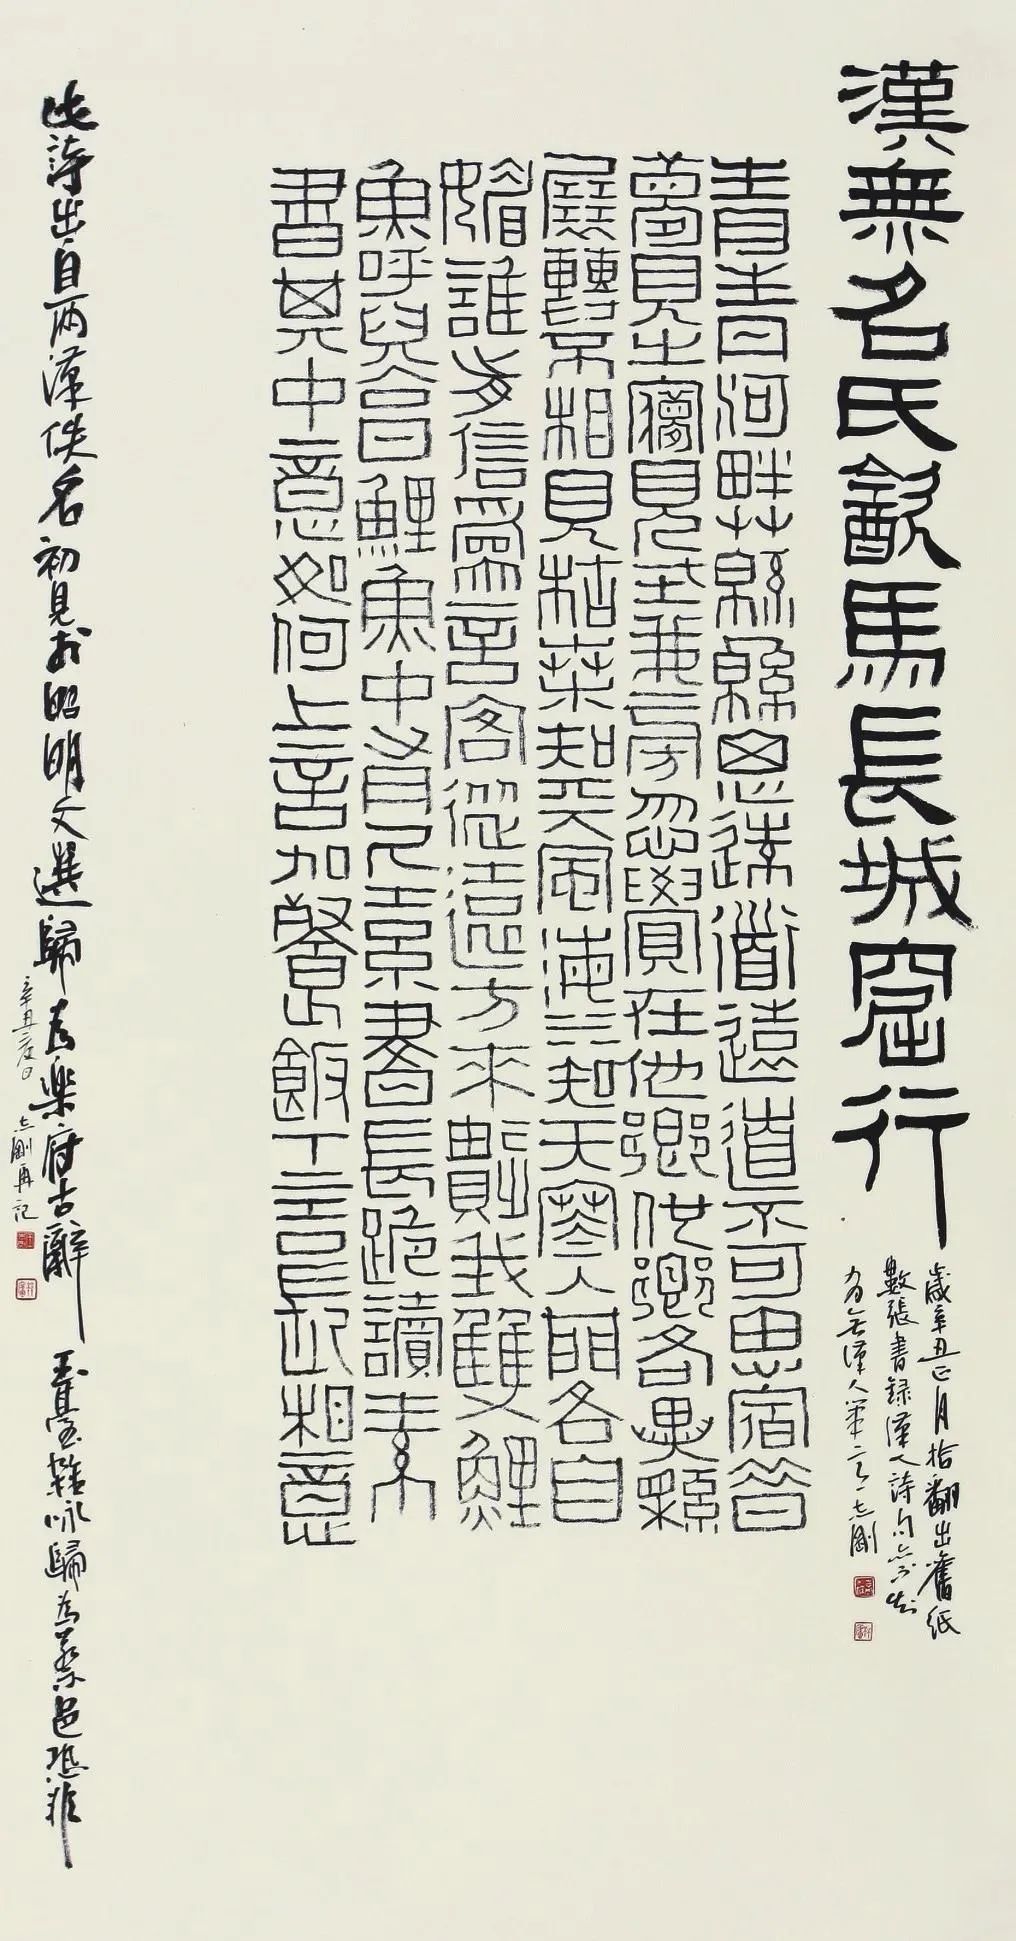 漢無名氏㱃馬長城窟行
歲辛丑正月拾翻出舊紙
數張書錄漢人詩句亦
無漢人筆意 志剛
青青河畔艸緜緜思遠道遠道不可思宿昔
夢見之夢見在我旁忽覺在他鄉他鄉各異縣
展轉不相見枯桑知天風海水知天寒入門各自
媚誰肯信為言客從遠方來遺我雙鯉
魚呼兒烹鯉魚中有尺素書長跪讀素
書其中意如何上言加餐飯下言長相意
此詩出自兩漢佚名初見於昭明文選歸為樂府古辭 玉臺新詠歸為蔡邕恐非
辛丑春日志剛再記